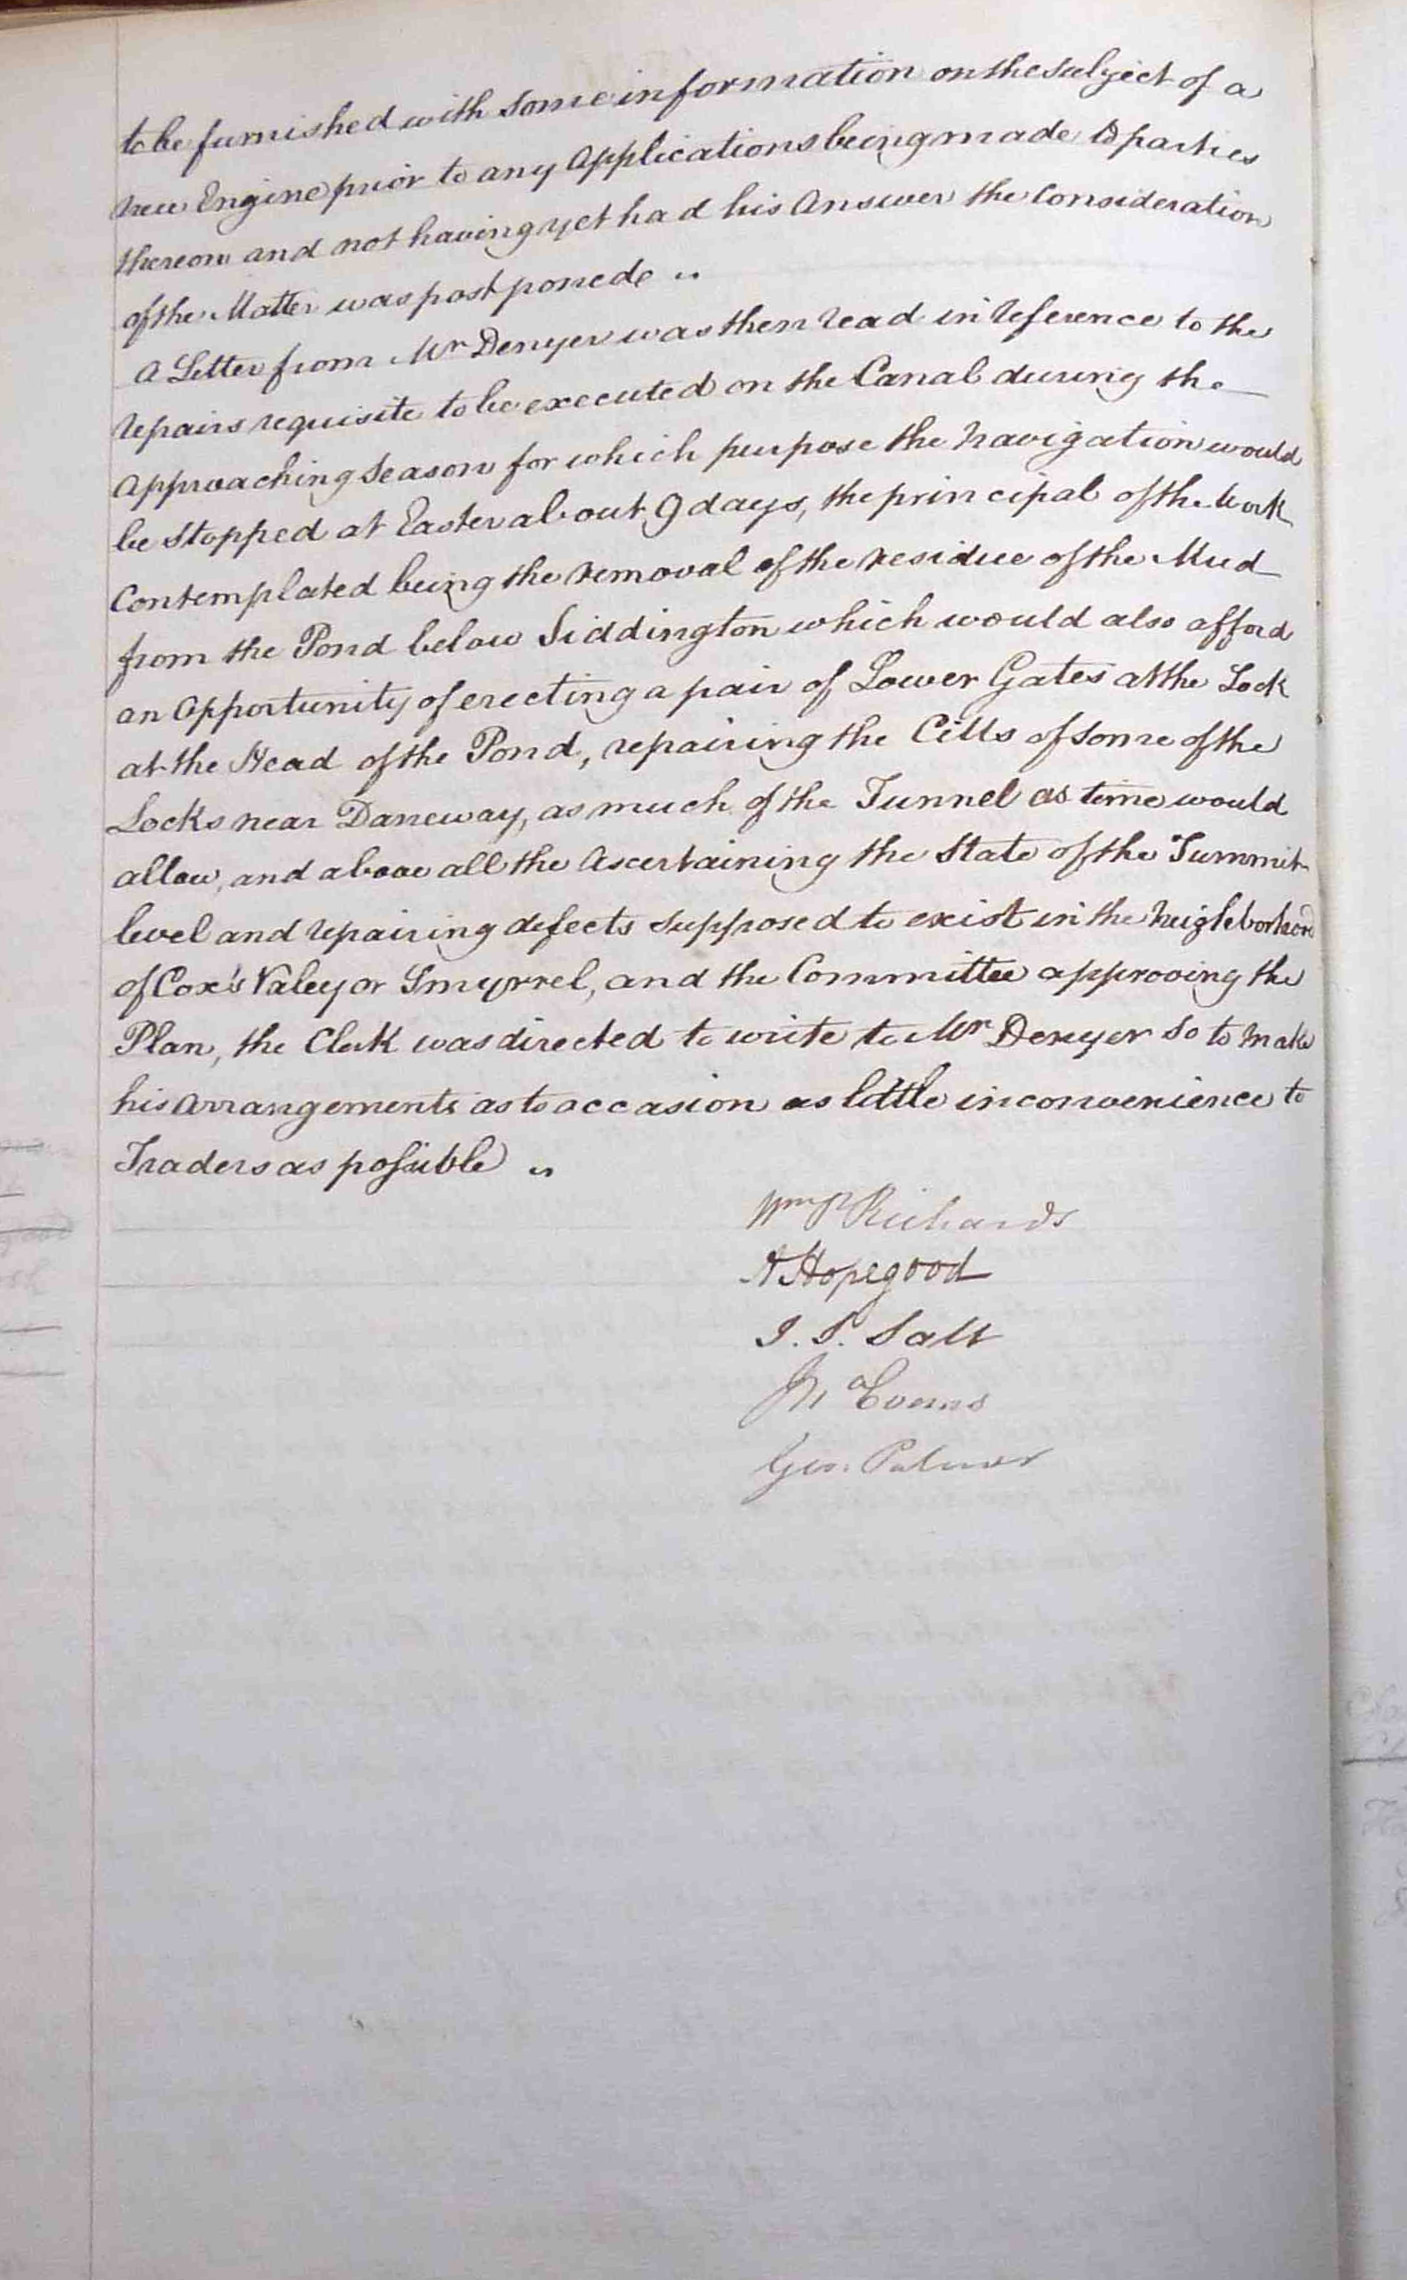 to be furnished with some information on the subject of a
new Engine prior to any Applications being made to parties
thereon and not having yet had his Answer the Consideration
of the Matter was postponed "
A Letter from Mr Denyer was then read in reference to the
repairs requisite to be executed on the Canal during the
approaching Season for which purpose the Navigation would
be Stopped at Easter about 9 days, the principal of the Work
Contemplated being the removal of the residue of the Mud
from the Pond below Siddington which would also afford
an Opportunity of erecting a pair of Lower Gates at the Lock
at the Head of the Pond, repairing the Cills of some of the
Locks near Daneway, as much of the Tunnel as time would
allow, and above all the Ascertaining the State of the Summit
level and repairing defects supposed to exist in the Neighborhood
of Cox's Valey or Smyrrel, and the Committee approving the
Plan, the Clerk was directed to write to Mr Denyer so to make
his Arrangements as to occasion as little inconvenience to
Traders as possible "
Wm P Richards
Hopegood
J. S. Salt
Evans
Geo. Palmer